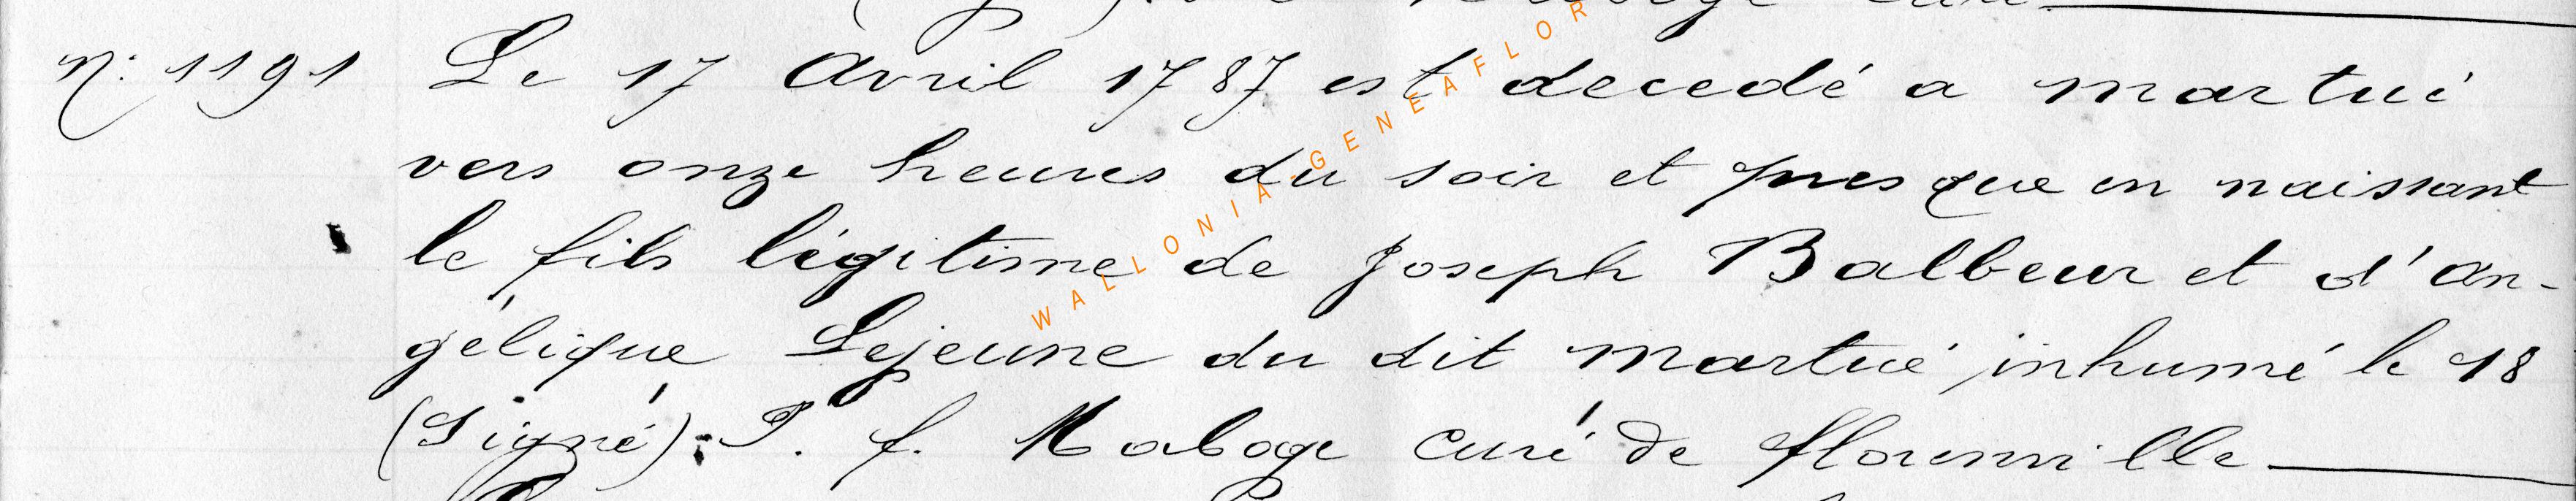 n: 1191 Le 17 avril 1787 est decedé a martué
vers onze heures du soir et presque en naissant
le fils légitime de Joseph Balbeur et d'an-
gélique Lejeune du dit martué, inhumé le 18
(Signé): J. f. Maboge curé de florenville
WALLONIA.GENEAFLOR